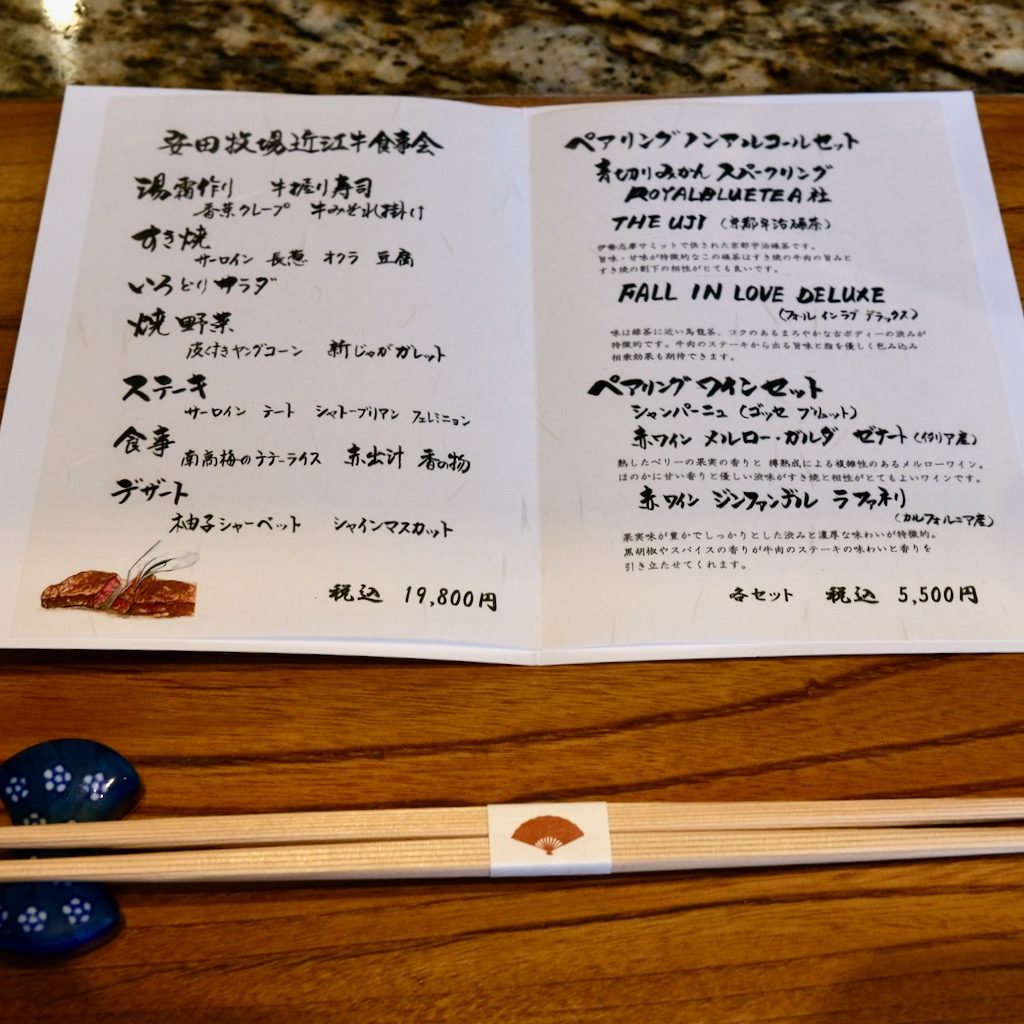 安田牧場近江牛食事会
湯霜作り 牛握り寿司
香菜クレープ 牛みぞれ掛け
すき焼
サーロイン 長葱 オクラ 豆腐
いろどりサラダ
焼野菜
皮付きヤングコーン 新じゃがガレット
ステーキ
サーロイン テート シャトーブリアン フェレミニョン
食事
南高梅の ライス 赤出汁 香の物
デザート
柚子シャーベット シャインマスカット
税込 19,800円
ペアリングノンアルコールセット
青切りみかん スパークリング
ROYALBLUETEA社
THE UJI (京都宇治碾茶)
伊勢志摩サミットで供された京都宇治碾茶です。
旨味・甘味が特徴的なこの碾茶はすき焼の牛肉の旨みと
すき焼の割下の相性がとても良いです。
FALL IN LOVE DELUXE
(フォール インラブ デラックス)
味は緑茶に近い烏龍茶、コクのあるまろやかな古ボディーの渋みが
特徴的です。牛肉のステーキから出る旨味と脂を優しく包み込み
相乗効果も期待できます。
ペアリング ワインセット
シャンパーニュ (ゴッセ ブリュット)
赤ワイン メルロー・ガルダ ゼナート (イタリア産)
熟したベリーの果実の香りと 樽熟成による複雑性のあるメルローワイン。
ほのかに甘い香りと優しい渋味がすき焼と相性がとてもよいワインです。
赤ワイン ジンファンデル ラファネリ
(カルフォルニア産)
果実味が豊かでしっかりとした渋みと濃厚な味わいが特徴的。
黒胡椒やスパイスの香りが牛肉のステーキの味わいと香りを
引き立たせてくれます。
各セット 税込 5,500円